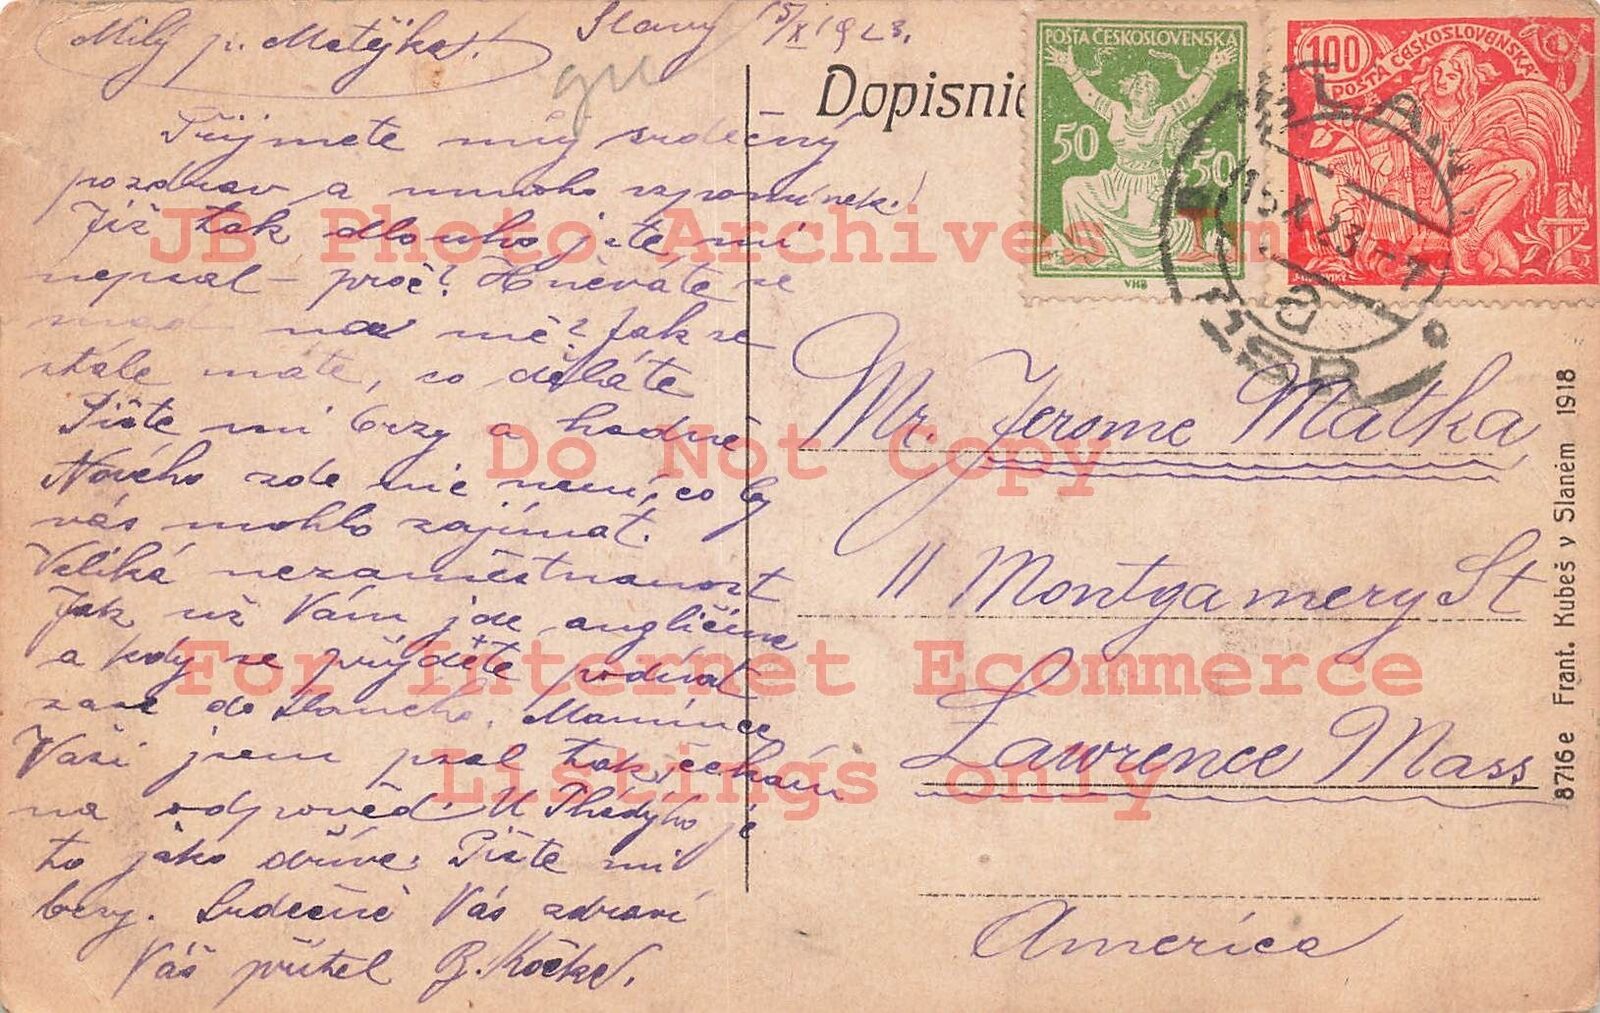 Milý p. Matějka! Slaný 15/X 1923.
Přijmete můj srdečný
pozdrav a mnoho vzpomínek!
Již tak dlouho jste mi
nepsal – proč? Hněváte se
snad na mě? Jak se
stále máte, co děláte
Pište mi brzy a hodně
Nového zde nic není, co by
vás mohlo zajímat.
Veliká nezaměstnanost
Jak už Vám jde angličina
a kdy se přijdete podívat
zase do Slaného. Mamince
Vaší jsem psal tak čekám
na odpověď. U je
to jako dříve. Pište mi
brzy. Srdečně Vás zdraví
Váš přítel
Dopisnic
POŠTA ČESKOSLOVENSKÁ
50 50
VHB
100
POŠTA ČESKOSLOVENSKÁ
15 X 23
ČSR
Mr. Jerome Matka,
11 Montgamery St
Lawrence Mass
America
8716e Frant. Kubeš v Slaném 1918
JB Photo Archives
Do Not Copy
For Internet Ecommerce
Listings only